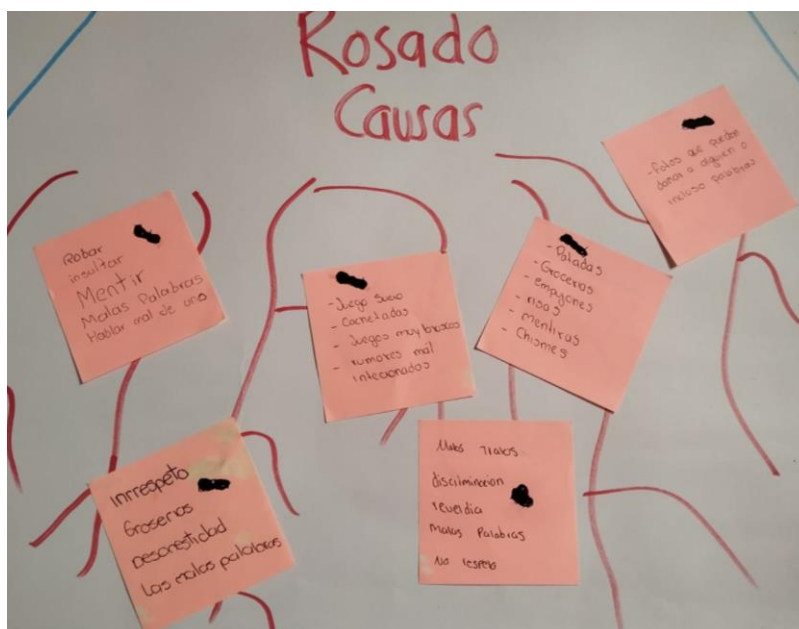 Rosado
Causas
Robar
insultar
Mentir
Malas Palabras
Hablar mal de uno
- Juego Sucio
- Cachetadas
- Juegos muy bruscos
- rumores mal
intecionados
- Patadas
- Grocerias
- empujones
- risas
- mentiras
- Chismes
- Fotos que puedan
dañar a alguien o
incluso palabras
inrrespeto
Groserias
Desonestidad
Las malas palabras
Malos Tratos
discilminacion
reveldia
Malas Palabras
No respeto